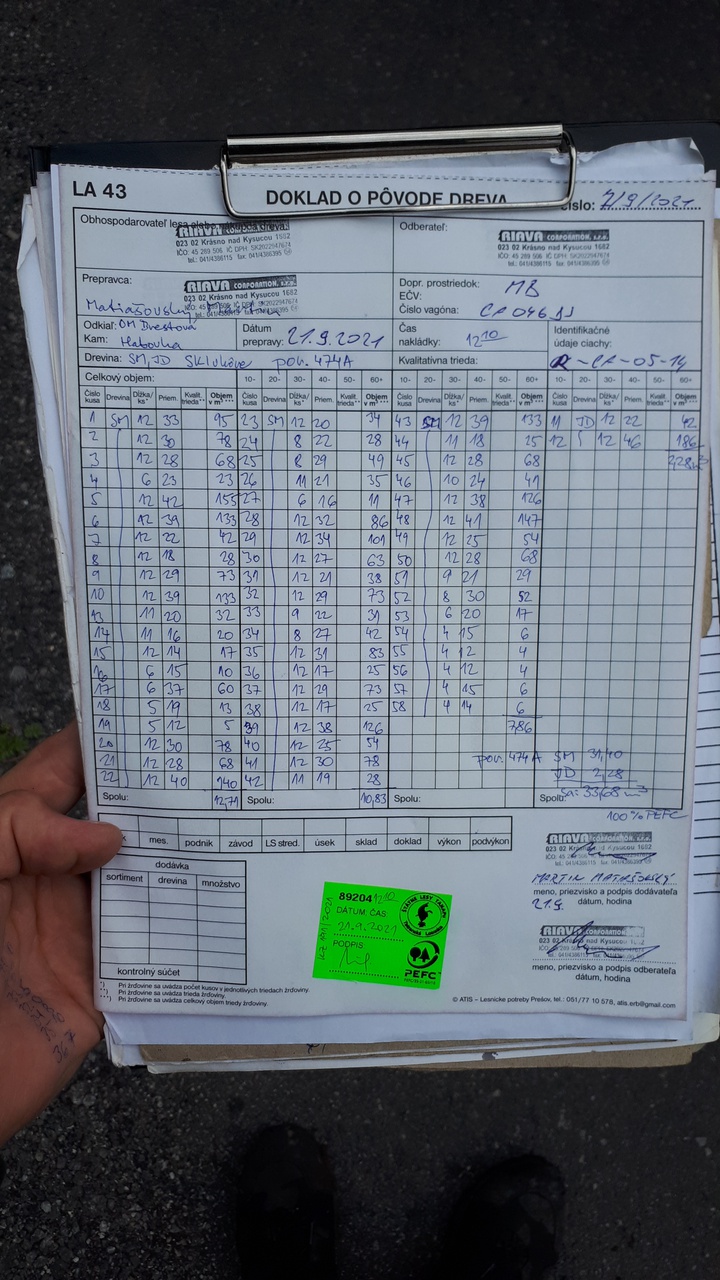 LA 43
DOKLAD O PÔVODE DREVA
číslo: 7/9/2021
Obhospodarovateľ lesa alebo
RIAVA CORPORATION, s.r.o.
023 02 Krásno nad Kysucou 1682
IČO: 45 289 506 IČ DPH: SK2022947674
tel.: 041/4386115 fax: 041/4386395
Odberateľ:
RIAVA CORPORATION, s.r.o.
023 02 Krásno nad Kysucou 1682
IČO: 45 289 506 IČ DPH: SK2022947674
tel.: 041/4386115 fax: 041/4386395
Prepravca:
RIAVA CORPORATION, s.r.o.
023 02 Krásno nad Kysucou 1682
Matiašovský
Dopr. prostriedok: MB
EČV:
Číslo vagóna: CA 046
Odkiaľ: OM Brestová
Kam: Habovka
Dátum prepravy: 21.9.2021
Čas nakládky: 12 10
Identifikačné údaje ciachy:
R-CA-05-14
Drevina: SM, JD por. 474A
Kvalitatívna trieda:
Celkový objem: 10- 20- 30- 40- 50- 60+ 10- 20- 30- 40- 50- 60+ 10- 20- 30- 40- 50- 60+
Číslo kusa Drevina Dĺžka/ks* Priem. Kvalit. trieda** Objem v m³ *** Číslo kusa Drevina Dĺžka/ks* Priem. Kvalit. trieda** Objem v m³ *** Číslo kusa Drevina Dĺžka/ks* Priem. Kvalit. trieda** Objem v m³ *** Číslo kusa Drevina Dĺžka/ks* Priem. Kvalit. trieda** Objem v m³ ***
1 SM 12 33 95 23 SM 12 20 34 43 SM 12 39 133 11 JD 12 22 42
2 12 30 78 24 8 22 28 44 11 18 25 12 12 46 186
3 12 28 68 25 8 29 49 45 12 28 68 2,28 m³
4 6 23 23 26 11 21 35 46 10 24 41
5 12 42 155 27 6 16 11 47 12 38 126
6 12 39 133 28 12 32 86 48 12 41 147
7 12 22 42 29 12 34 101 49 12 25 54
8 12 18 28 30 12 27 63 50 12 28 68
9 12 29 73 31 12 21 38 51 9 21 29
10 12 39 133 32 12 29 73 52 8 30 52
13 11 20 32 33 9 22 31 53 6 20 17
14 11 16 20 34 8 27 42 54 4 15 6
15 12 14 17 35 12 31 83 55 4 12 4
16 6 15 10 36 12 17 25 56 4 12 4
17 6 37 60 37 12 29 73 57 4 15 6
18 5 19 13 38 12 17 25 58 4 14 6
19 5 12 5 39 12 38 126 7,86
20 12 30 78 40 12 25 54
21 12 28 68 41 12 30 78 por. 474A SM 31,40
22 12 40 140 42 11 19 28 JD 2,28
Spolu: 12,71 Spolu: 10,83 Spolu: Spolu: Sa: 33,68 m³
100% PEFC
mes. podnik závod LS stred. úsek sklad doklad výkon podvýkon
dodávka
sortiment drevina množstvo
kontrolný súčet
89204 12 10
DÁTUM, ČAS
21.9.2021
PODPIS
ŠTÁTNE LESY TANAPU
PEFC
RIAVA CORPORATION, s.r.o.
023 02 Krásno nad Kysucou 1682
MARTIN MATIAŠOVSKÝ
meno, priezvisko a podpis dodávateľa
21.9.
dátum, hodina
RIAVA CORPORATION, s.r.o.
meno, priezvisko a podpis odberateľa
dátum, hodina
*) Pri žrďovine sa uvádza počet kusov v jednotlivých triedach žrďoviny.
**) Pri žrďovine sa uvádza trieda žrďoviny.
***) Pri žrďovine sa uvádza celkový objem triedy žrďoviny.
© ATIS – Lesnícke potreby Prešov, tel.: 051/77 10 578, atis.erb@gmail.com